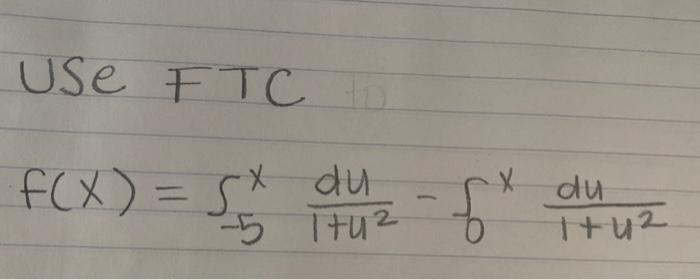 USE FTC
f(x) = ∫_{-5}^{x} du/(1+u²) - ∫_{0}^{x} du/(1+u²)